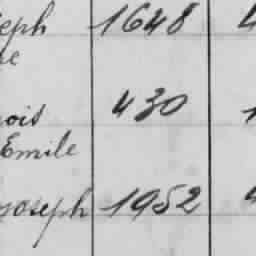 eph 1648 4
e
ois 430 1
Emile
Joseph 1952 4